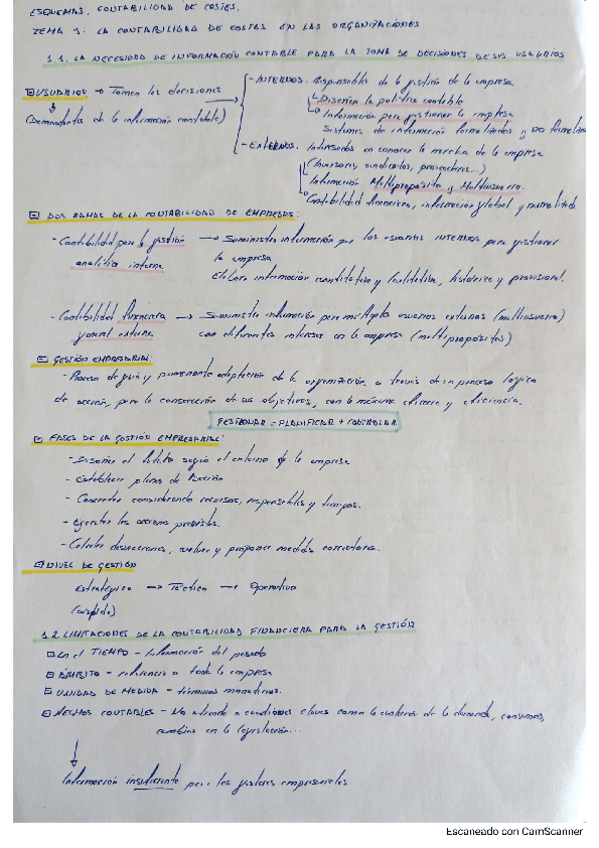 ESQUEMAS. CONTABILIDAD DE COSTES.
TEMA 1: LA CONTABILIDAD DE COSTES EN LAS ORGANIZACIONES
1.1. LA NECESIDAD DE INFORMACIÓN CONTABLE PARA LA TOMA DE DECISIONES DE SUS USUARIOS
USUARIOS → Toman las decisiones
(Demandantes de la información contable)
- INTERNOS. Responsables de la gestión de la empresa.
Diseñan la política contable
Información para gestionar la empresa
Sistemas de información formalizados y no formalizados
- EXTERNOS. Interesados en conocer la marcha de la empresa
(Inversores, sindicatos, proveedores...)
Información Multipropósito y Multiusuario.
Contabilidad financiera, información global y normalizada
DOS RAMAS DE LA CONTABILIDAD DE EMPRESAS:
- Contabilidad para la gestión → Suministra información para los usuarios internos para gestionar
analítica interna la empresa
Elabora información cuantitativa y cualitativa, histórica y previsional.
- Contabilidad financiera → Suministra información para múltiples usuarios externos (multiusuario)
general externa con diferentes intereses en la empresa (multipropósitos)
GESTIÓN EMPRESARIAL:
- Proceso de guía y permanente adaptación de la organización a través de un proceso lógico
de acción, para la consecución de sus objetivos, con la máxima eficacia y eficiencia.
GESTIONAR = PLANIFICAR + CONTROLAR
FASES DE LA GESTIÓN EMPRESARIAL:
- Diseñar el futuro según el entorno de la empresa
- Establecer planes de acción
- Concretar considerando recursos, responsables y tiempos.
- Ejecutar las acciones previstas.
- Calcular desviaciones, evaluar y proponer medidas correctoras.
NIVEL DE GESTIÓN
Estratégico → Táctico → Operativo
(cúspide)
1.2. LIMITACIONES DE LA CONTABILIDAD FINANCIERA PARA LA GESTIÓN
En el TIEMPO - Información del pasado
ÁMBITO - referencia a toda la empresa
UNIDAD DE MEDIDA - términos monetarios.
HECHOS CONTABLES - No atiende a condiciones claves como la de la demanda, consumos,
cambios en la legislación...
Información insuficiente para los gestores empresariales
Escaneado con CamScanner